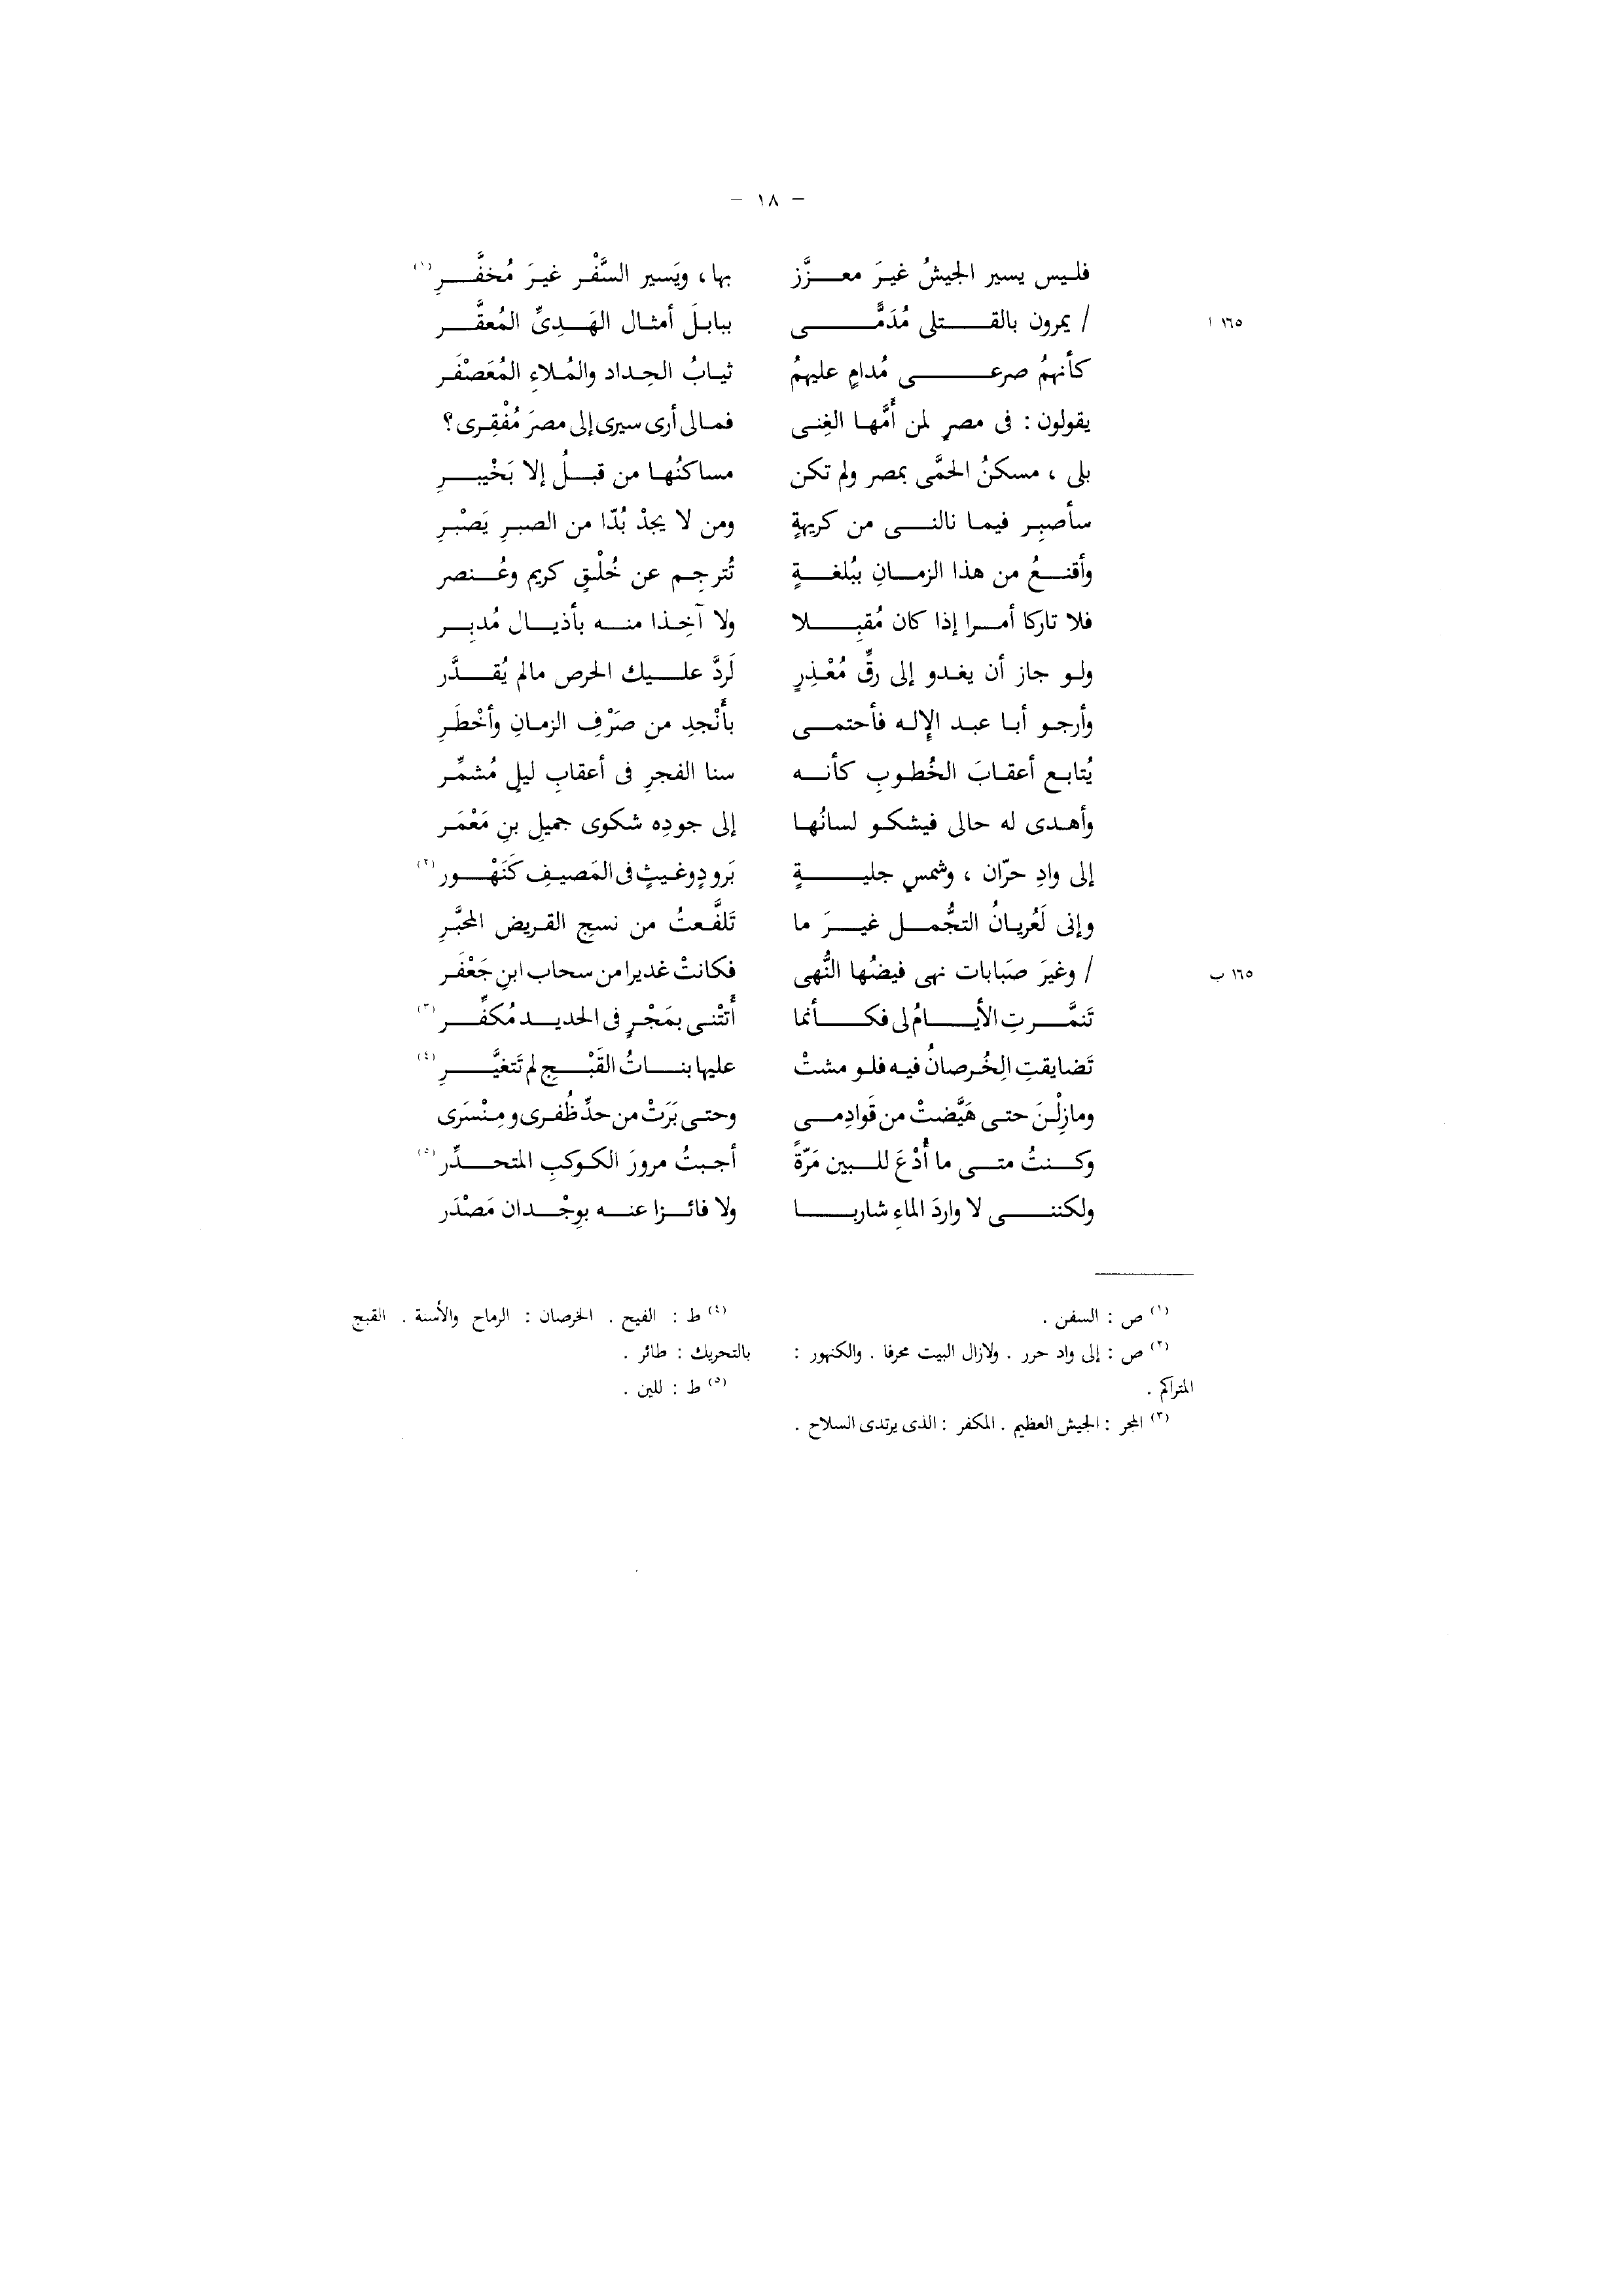 – ١٨ –
فليس يسير الجيشُ غيرَ معزَّز بها، ويَسير السَّفْر غيرَ مُخفَّرِ (١)
١٦٥ ا / يمرون بالقتلى مُدَمًّى ببابلَ أمثال الهَدِىِّ المُعقَّر
كأنهمُ صرعى مُدامٍ عليهمُ ثيابُ الحِداد والمُلاءِ المُعَصْفَر
يقولون : فى مصرٍ لمن أَمَّها الغِنى فمالى أرى سيرى إلى مصرَ مُفْقِرى؟
بلى ، مسكنُ الحمَّى بمصر ولم تكن مساكنُها من قبلُ إلا بَخْيبرِ
سأصبِر فيما نالنى من كريهةٍ ومن لا يجدْ بُدّا من الصبرِ يَصْبرِ
وأقنعُ من هذا الزمانِ ببُلغةٍ تُترجِم عن خُلْقٍ كريم وعُنصر
فلا تاركا أمرا إذا كان مُقبِلا ولا آخِذا منه بأذيال مُدبِر
ولو جاز أن يغدو إلى رقٍّ مُعْذِرٍ لَردَّ عليك الحرص مالم يُقدَّر
وأرجو أبا عبد الإِله فأحتمى بأَنْجدِ من صَرْفِ الزمانِ وأخْطَرِ
يُتابع أعقابَ الخُطوبِ كأنه سنا الفجرِ فى أعقابِ ليلٍ مُشمِّر
وأهدى له حالى فيشكو لسانُها إلى جودِه شكوى جميلِ بنِ مَعْمَر
إلى وادِ حرّان ، وشمسٍ جليةٍ بَرودٍوغيثٍ فى المَصيفِ كَنَهْور (٢)
وإنى لَعُريانُ التجُّمل غيرَ ما تَلفَّعتُ من نسجِ القريض المحبَّرِ
١٦٥ ب / وغيرَ صَبابات نهى فيضُها النُّهى فكانتْ غديرا من سحاب ابنِ جَعْفَر
تَنمَّرتِ الأيامُ لى فكأنما أَتتْنى بمَجْرٍ فى الحديد مُكفِّر (٣)
تَضايقتِ الخُرصانُ فيه فلو مشتْ عليها بناتُ القَبْجِ لم تَتغيَّرِ (٤)
ومازِلْنَ حتى هَيَّضتْ من قَوادِمى وحتى بَرَتْ من حدِّ ظُفرى و مِنْسَرى
وكنتُ متى ما أُدْعَ للبين مَرّةً أجبتُ مرورَ الكوكبِ المتحدِّر (٥)
ولكننى لا واردَ الماءِ شاربا ولا فائزا عنه بوِجْدان مَصْدَر
(١) ص : السفن .
(٢) ص : إلى واد حرر . ولازال البيت محرفا . والكنهور :
المتراكم .
(٣) المجر : الجيش العظيم . المكفر : الذى يرتدى السلاح .
(٤) ط : الفيح . الخرصان : الرماح والأسنة . القبج
بالتحريك : طائر .
(٥) ط : للين .